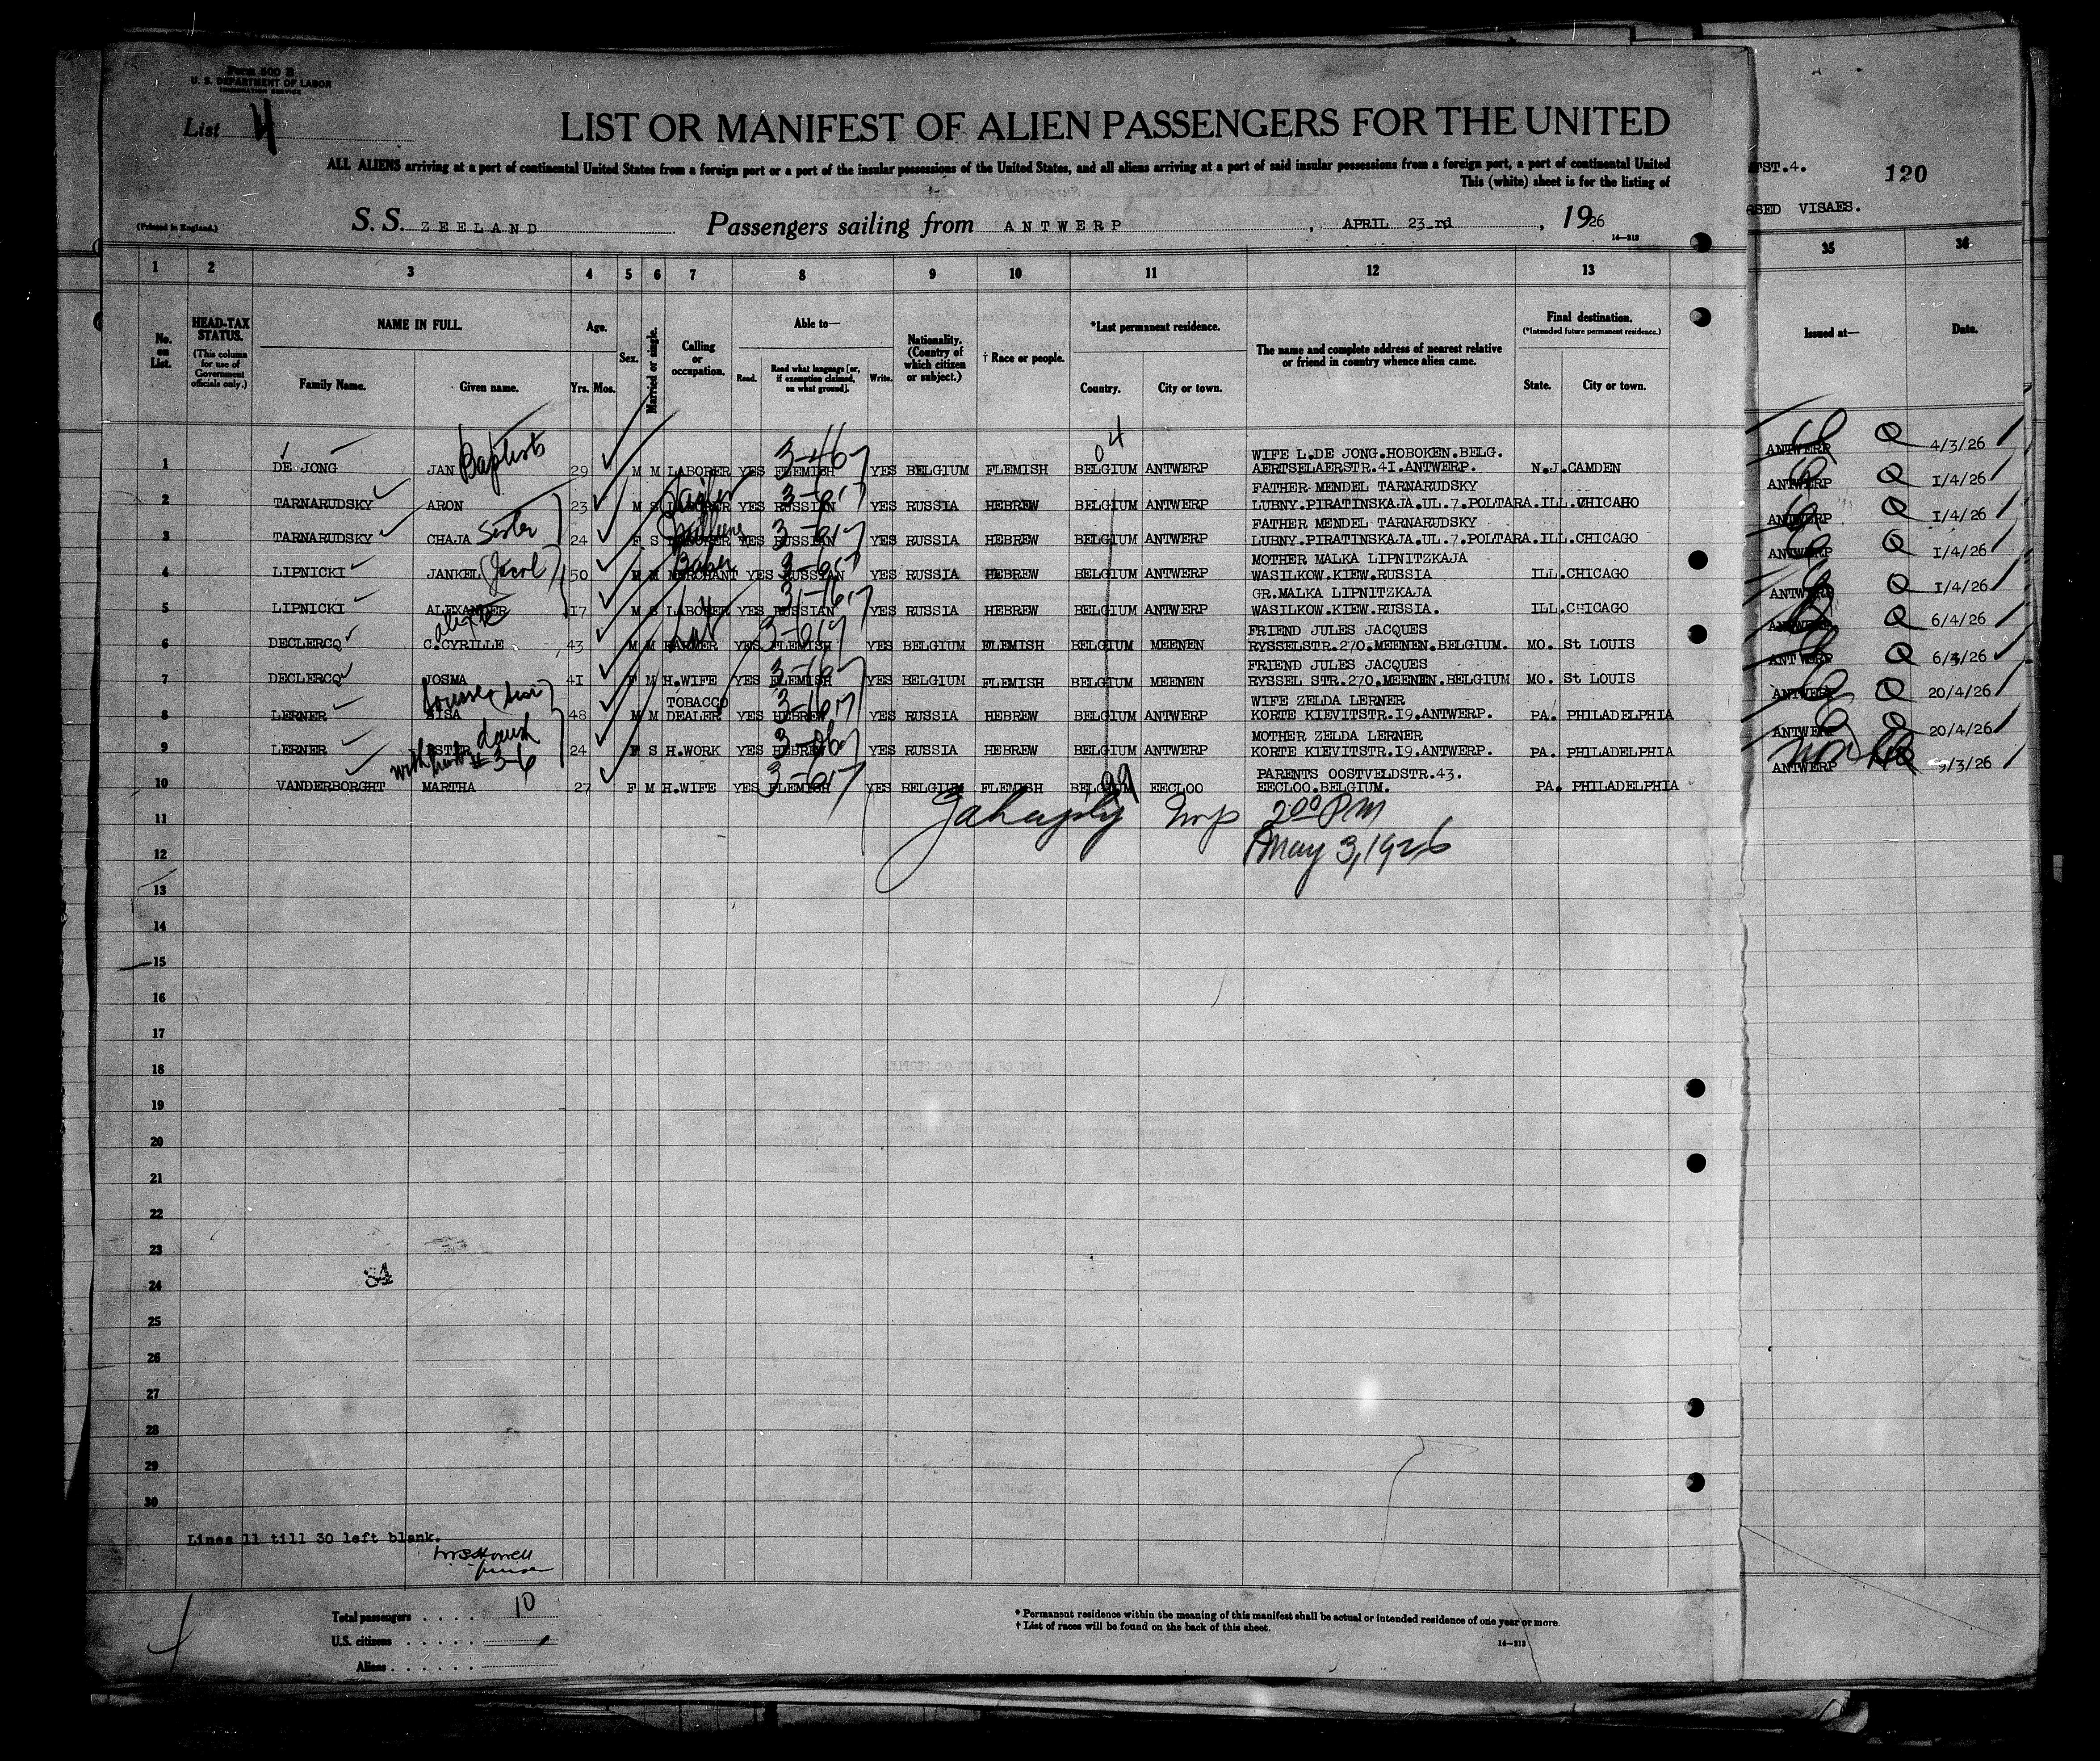 Form 500 B
U. S. DEPARTMENT OF LABOR
IMMIGRATION SERVICE
List 4
LIST OR MANIFEST OF ALIEN PASSENGERS FOR THE UNITED
ALL ALIENS arriving at a port of continental United States from a foreign port or a port of the insular possessions of the United States, and all aliens arriving at a port of said insular possessions from a foreign port, a port of continental United
This (white) sheet is for the listing of
ST.4. 120
SED VISAES.
(Printed in England.) S. S. ZEELAND Passengers sailing from ANTWERP, APRIL 23rd, 1926
14-213
1 2 3 4 5 6 7 8 9 10 11 12 13 35 36
No. on List.
HEAD-TAX STATUS.
(This column for use of Government officials only.)
NAME IN FULL.
Family Name. Given name.
Age.
Yrs. Mos.
Sex.
Married or single.
Calling or occupation.
Able to—
Read. Read what language [or, if exemption claimed, on what ground]. Write.
Nationality. (Country of which citizen or subject.)
† Race or people.
*Last permanent residence.
Country. City or town.
The name and complete address of nearest relative or friend in country whence alien came.
Final destination.
(*Intended future permanent residence.)
State. City or town.
Issued at— Date.
Baptiste 3-467 04 WIFE L.DE JONG.HOBOKEN.BELG.
1 DE JONG JAN 29 M M LABORER YES FLEMISH YES BELGIUM FLEMISH BELGIUM ANTWERP AERTSELAERSTR.41.ANTWERP. N.J. CAMDEN ANTWERP 4/3/26
FATHER MENDEL TARNARUDSKY
2 TARNARUDSKY ARON 23 M S LABORER YES RUSSIAN YES RUSSIA HEBREW BELGIUM ANTWERP LUBNY.PIRATINSKAJA.UL.7.POLTARA. ILL. CHICAGO ANTWERP 1/4/26
FATHER MENDEL TARNARUDSKY
3 TARNARUDSKY CHAJA Sister 24 F S YES RUSSIAN YES RUSSIA HEBREW BELGIUM ANTWERP LUBNY.PIRATINSKAJA.UL.7.POLTARA. ILL. CHICAGO ANTWERP 1/4/26
MOTHER MALKA LIPNITZKAJA
4 LIPNICKI JANKEL (Jacob) 50 M M Baker MERCHANT YES RUSSIAN YES RUSSIA HEBREW BELGIUM ANTWERP WASILKOW.KIEW.RUSSIA ILL. CHICAGO ANTWERP 1/4/26
GR.MALKA LIPNITZKAJA
5 LIPNICKI ALEXANDER 17 M S LABORER YES RUSSIAN YES RUSSIA HEBREW BELGIUM ANTWERP WASILKOW.KIEW.RUSSIA. ILL. CHICAGO ANTWERP 1/4/26
FRIEND JULES JACQUES
6 DECLERCQ C.CYRILLE 43 M M FARMER YES FLEMISH YES BELGIUM FLEMISH BELGIUM MEENEN RYSSELSTR.270.MEENEN.BELGIUM. MO. St LOUIS ANTWERP 6/4/26
FRIEND JULES JACQUES
7 DECLERCQ JOSMA 41 F M H.WIFE YES FLEMISH YES BELGIUM FLEMISH BELGIUM MEENEN RYSSEL STR.270.MEENEN.BELGIUM MO. St LOUIS ANTWERP 6/3/26
TOBACCO WIFE ZELDA LERNER
8 LERNER SISA 48 M M DEALER YES HEBREW YES RUSSIA HEBREW BELGIUM ANTWERP KORTE KIEVITSTR.19.ANTWERP. PA. PHILADELPHIA ANTWERP 20/4/26
daug MOTHER ZELDA LERNER
9 LERNER ESTER 24 F S H.WORK YES HEBREW YES RUSSIA HEBREW BELGIUM ANTWERP KORTE KIEVITSTR.19.ANTWERP. PA. PHILADELPHIA ANTWERP 20/4/26
PARENTS OOSTVELDSTR.43.
10 VANDERBORGHT MARTHA 27 F M H.WIFE YES FLEMISH YES BELGIUM FLEMISH BELGIUM EECLOO EECLOO.BELGIUM. PA. PHILADELPHIA ANTWERP 9/3/26
11 Insp 2⁰⁰ PM
12 May 3, 1926
13
14
15
16
17
18
19
20
21
22
23
24
25
26
27
28
29
30
Lines 11 till 30 left blank.
Total passengers . . . . 10
U.S. citizens . . . . .
Aliens . . . . . .
* Permanent residence within the meaning of this manifest shall be actual or intended residence of one year or more.
† List of races will be found on the back of this sheet.
14-213